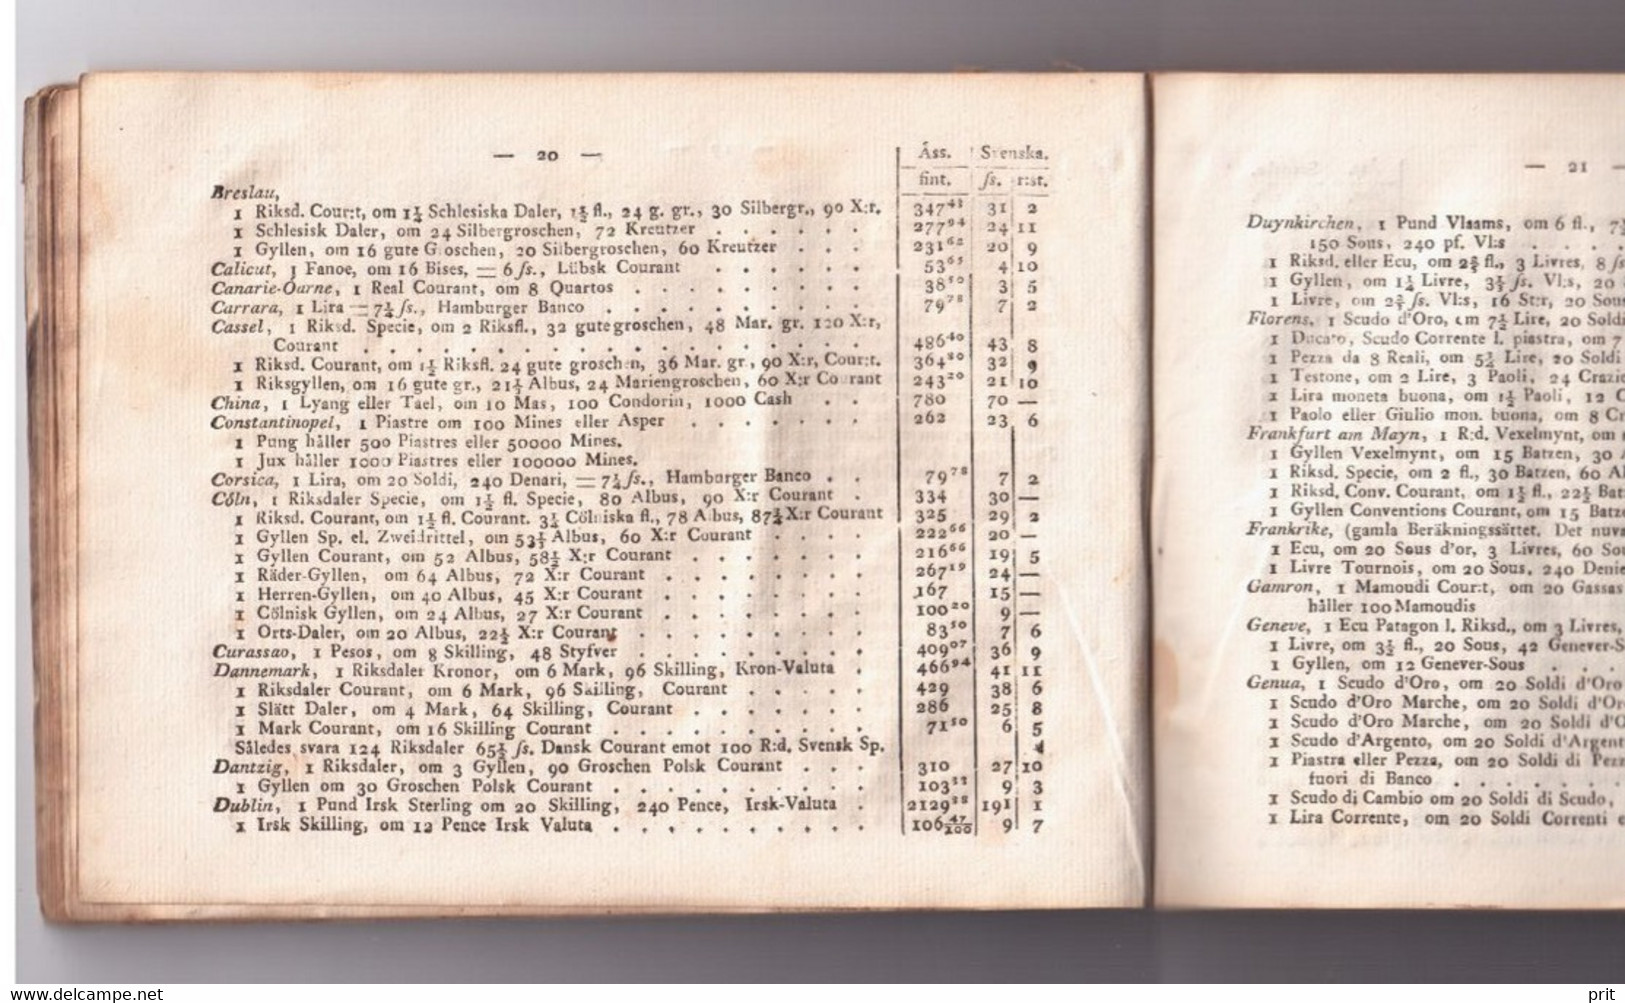 — 20 —
Åss. Svenska.
fint. ſs. r:st.
Breslau,
1 Riksd. Cour:t, om 1¼ Schlesiska Daler, 1½ fl., 24 g. gr., 30 Silbergr., 90 X:r. 347 43 31 2
1 Schlesisk Daler, om 24 Silbergroschen, 72 Kreutzer . . . . . . 277 94 24 11
1 Gyllen, om 16 gute Groschen, 20 Silbergroschen, 60 Kreutzer . . . 231 62 20 9
Calicut, 1 Fanoe, om 16 Bises, = 6 ſs., Lübsk Courant . . . . . . 53 65 4 10
Canarie-Öarne, 1 Real Courant, om 8 Quartos . . . . . . . . 38 50 3 5
Carrara, 1 Lira = 7¼ ſs., Hamburger Banco . . . . . . . . . 79 78 7 2
Cassel, 1 Riksd. Specie, om 2 Riksfl., 32 gutegroschen, 48 Mar. gr. 120 X:r,
Courant . . . . . . . . . . . . . . . . 486 40 43 8
1 Riksd. Courant, om 1½ Riksfl. 24 gute groschen, 36 Mar. gr., 90 X:r, Cour:t. 364 80 32 9
1 Riksgyllen, om 16 gute gr., 21⅓ Albus, 24 Mariengroschen, 60 X:r Courant 243 20 21 10
China, 1 Lyang eller Tael, om 10 Mas, 100 Condorin, 1000 Cash . . 780 70 —
Constantinopel, 1 Piastre om 100 Mines eller Asper . . . . . . . 262 23 6
1 Pung håller 500 Piastres eller 50000 Mines.
1 Jux håller 1000 Piastres eller 100000 Mines.
Corsica, 1 Lira, om 20 Soldi, 240 Denari, = 7¼ ſs., Hamburger Banco . . 79 78 7 2
Cöln, 1 Riksdaler Specie, om 1½ fl. Specie, 80 Albus, 90 X:r Courant . 334 30 —
1 Riksd. Courant, om 1½ fl. Courant. 3¼ Cölniska fl., 78 Albus, 87¾ X:r Courant 325 29 2
1 Gyllen Sp. el. Zweidrittel, om 53⅓ Albus, 60 X:r Courant . . . . 222 66 20 —
1 Gyllen Courant, om 52 Albus, 58½ X:r Courant . . . . . . . 216 66 19 5
1 Räder-Gyllen, om 64 Albus, 72 X:r Courant . . . . . . . 267 19 24 —
1 Herren-Gyllen, om 40 Albus, 45 X:r Courant . . . . . . . 167 15 —
1 Cölnisk Gyllen, om 24 Albus, 27 X:r Courant . . . . . . . 100 20 9 —
1 Orts-Daler, om 20 Albus, 22½ X:r Courant . . . . . . . . 83 50 7 6
Curassao, 1 Pesos, om 8 Skilling, 48 Styfver . . . . . . . . 409 07 36 9
Dannemark, 1 Riksdaler Kronor, om 6 Mark, 96 Skilling, Kron-Valuta . 466 94 41 11
1 Riksdaler Courant, om 6 Mark, 96 Skilling, Courant . . . . . 429 38 6
1 Slätt Daler, om 4 Mark, 64 Skilling, Courant . . . . . . . 286 25 8
1 Mark Courant, om 16 Skilling Courant . . . . . . . . . 71 50 6 5
Således svara 124 Riksdaler 65½ ſs. Dansk Courant emot 100 R:d. Svensk Sp.
Dantzig, 1 Riksdaler, om 3 Gyllen, 90 Groschen Polsk Courant . . . 310 27 10
1 Gyllen om 30 Groschen Polsk Courant . . . . . . . . . 103 33 9 3
Dublin, 1 Pund Irsk Sterling om 20 Skilling, 240 Pence, Irsk-Valuta . 2129 38 191 1
1 Irsk Skilling, om 12 Pence Irsk Valuta . . . . . . . . . 106 47/100 9 7
— 21
Duynkirchen, 1 Pund Vlaams, om 6 fl.,
150 Sous, 240 pf. Vl:s . . . .
1 Riksd. eller Ecu, om 2⅖ fl., 3 Livres, 8
1 Gyllen, om 1¼ Livre, 3⅓ ſs. Vl:s, 20
1 Livre, om 2⅔ ſs. Vl:s, 16 St:r, 20 Sous
Florens, 1 Scudo d'Oro, om 7½ Lire, 20 Soldi
1 Ducato, Scudo Corrente l. piastra, om 7
1 Pezza da 8 Reali, om 5¾ Lire, 20 Soldi
1 Testone, om 2 Lire, 3 Paoli, 24 Crazie
1 Lira moneta buona, om 1½ Paoli, 12
1 Paolo eller Giulio mon. buona, om 8
Frankfurt am Mayn, 1 R:d. Vexelmynt, om
1 Gyllen Vexelmynt, om 15 Batzen, 30
1 Riksd. Specie, om 2 fl., 30 Batzen, 60
1 Riksd. Conv. Courant, om 1½ fl., 22½
1 Gyllen Conventions Courant, om 15
Frankrike, (gamla Beräkningssättet. Det
1 Ecu, om 20 Sous d'or, 3 Livres, 60
1 Livre Tournois, om 20 Sous, 240
Gamron, 1 Mamoudi Cour:t, om 20 Gassas
håller 100 Mamoudis
Geneve, 1 Ecu Patagon l. Riksd., om 3 Livres,
1 Livre, om 3½ fl., 20 Sous, 42
1 Gyllen, om 12 Genever-Sous . . .
Genua, 1 Scudo d'Oro, om 20 Soldi d'Oro
1 Scudo d'Oro Marche, om 20 Soldi
1 Scudo d'Oro Marche, om 20 Soldi
1 Scudo d'Argento, om 20 Soldi
1 Piastra eller Pezza, om 20 Soldi di
fuori di Banco . . . . . .
1 Scudo di Cambio om 20 Soldi di Scudo,
1 Lira Corrente, om 20 Soldi Correnti
www.delcampe.net
prit